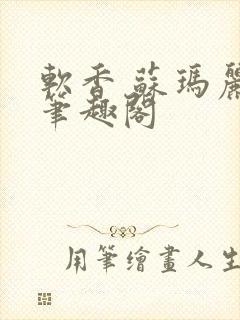 軟香蘇瑪麗
筆趣閣
用筆繪畫人生